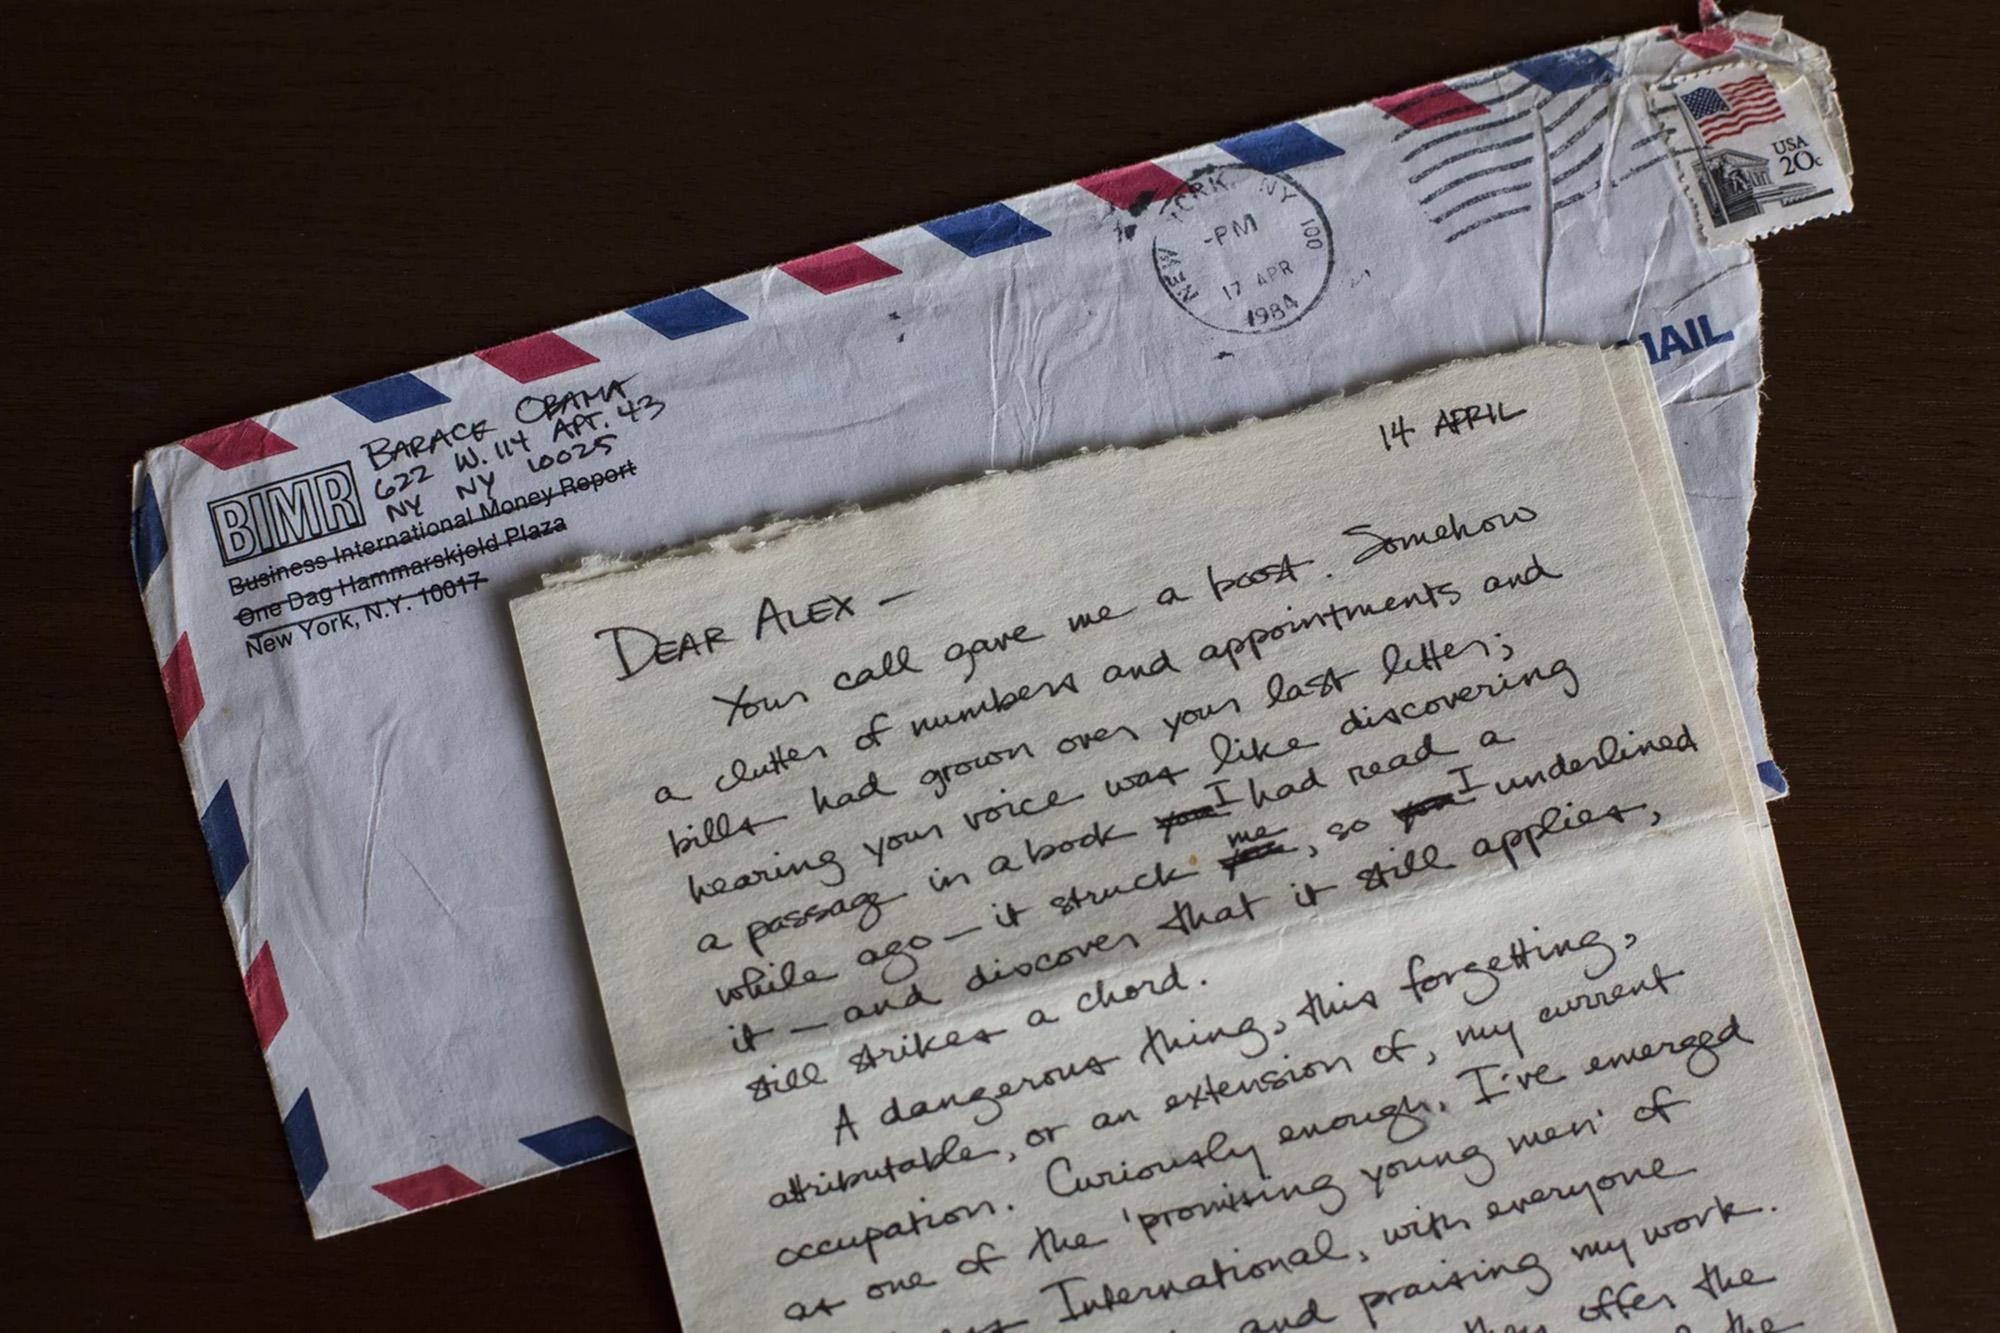 USA
20c
NEW YORK NY 100
-PM
17 APR
1984
MAIL
BARACK OBAMA
622 W. 114 APT. 43
NY NY 10025
BIMR
Business International Money Report
One Dag Hammarskjold Plaza
New York, N.Y. 10017
14 APRIL
DEAR ALEX —
Your call gave me a boost. Somehow
a clutter of numbers and appointments and
bills had grown over your last letter;
hearing your voice was like discovering
a passage in a book I had read a
while ago — it struck me, so I underlined
it — and discover that it still applies,
still strikes a chord.
A dangerous thing, this forgetting,
attributable, or an extension of, my current
occupation. Curiously enough, I've emerged
as one of the 'promising young men' of
International, with everyone
and praising my work.
they offer the
the